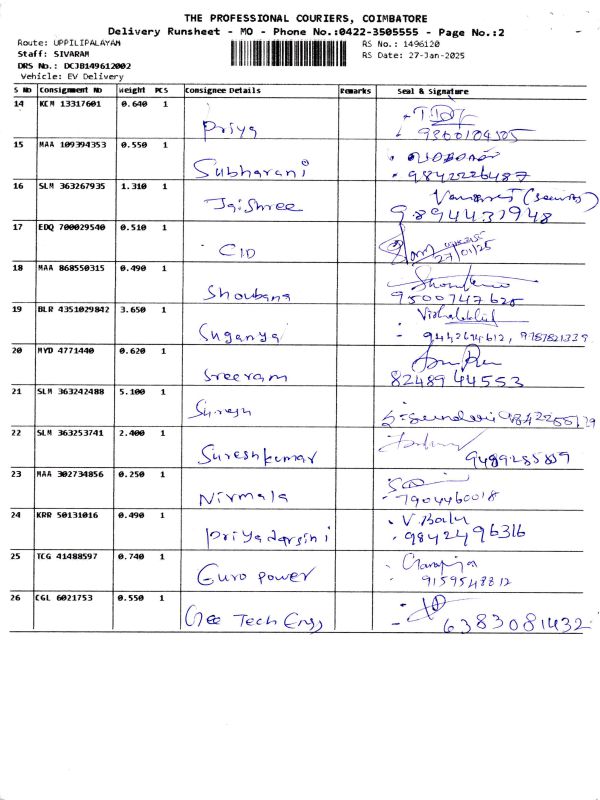 THE PROFESSIONAL COURIERS, COIMBATORE
Delivery Runsheet - MO - Phone No.:0422-3505555 - Page No.:2
Route: UPPILIPALAYAM
RS No.: 1496120
Staff: SIVARAM
RS Date: 27-Jan-2025
DRS No.: DCJB149612002
Vehicle: EV Delivery
S No Consignment No Weight PCS Consignee Details Remarks Seal & Signature
14 KCM 13317601 0.640 1 Priya
15 MAA 109394353 0.550 1 Subharani 9842226487
16 SLM 363267935 1.310 1 Jaishree (Security)
9894437948
17 EDQ 700029540 0.510 1 CID 27/01/25
18 MAA 868550315 0.490 1 Shoubana
9500747626
19 BLR 4351029842 3.650 1 Suganya
9442674612, 9787821339
20 MYD 4771440 0.620 1 Sreeram
8248944553
21 SLM 363242488 5.100 1 Suresh
22 SLM 363253741 2.400 1 Sureshkumar
9489285859
23 MAA 302734856 0.250 1 Nirmala
7904460018
24 KRR 50131016 0.490 1 Priyadarsini V. Balu
9842496316
25 TCG 41488597 0.740 1 Euro power
9159548812
26 CGL 6021753 0.550 1 Gee Tech Engg
6383081432